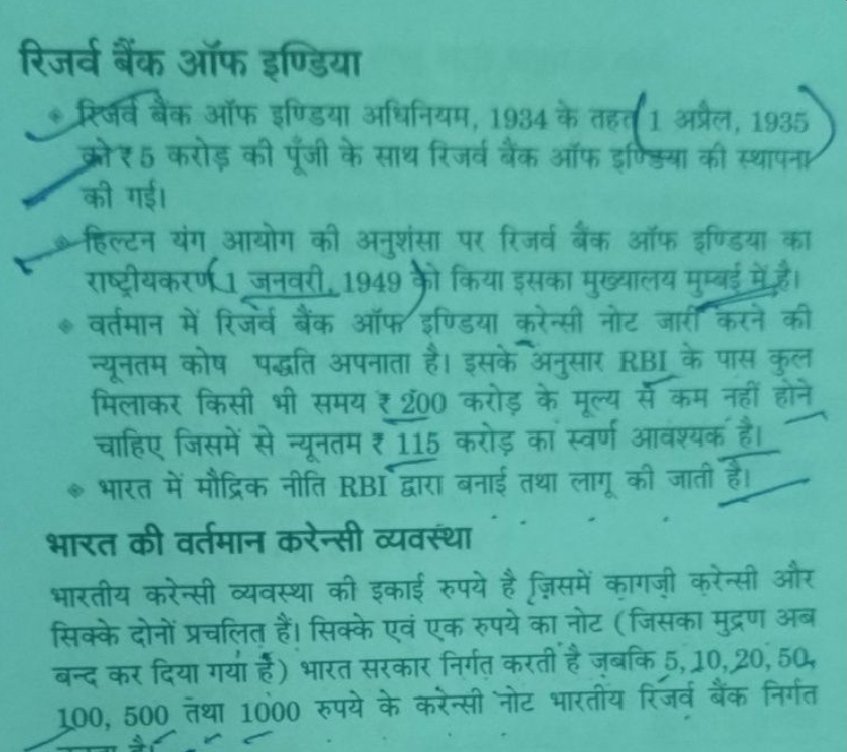 रिजर्व बैंक ऑफ इण्डिया
रिजर्व बैंक ऑफ इण्डिया अधिनियम, 1934 के तहत 1 अप्रैल, 1935
को ₹ 5 करोड़ की पूँजी के साथ रिजर्व बैंक ऑफ इण्डिया की स्थापना
की गई।
हिल्टन यंग आयोग की अनुशंसा पर रिजर्व बैंक ऑफ इण्डिया का
राष्ट्रीयकरण 1 जनवरी, 1949 को किया इसका मुख्यालय मुम्बई में है।
वर्तमान में रिजर्व बैंक ऑफ इण्डिया करेन्सी नोट जारी करने की
न्यूनतम कोष पद्धति अपनाता है। इसके अनुसार RBI के पास कुल
मिलाकर किसी भी समय ₹ 200 करोड़ के मूल्य से कम नहीं होने
चाहिए जिसमें से न्यूनतम ₹ 115 करोड़ का स्वर्ण आवश्यक है।
भारत में मौद्रिक नीति RBI द्वारा बनाई तथा लागू की जाती है।
भारत की वर्तमान करेन्सी व्यवस्था
भारतीय करेन्सी व्यवस्था की इकाई रुपये है जिसमें कागजी करेन्सी और
सिक्के दोनों प्रचलित हैं। सिक्के एवं एक रुपये का नोट (जिसका मुद्रण अब
बन्द कर दिया गया है) भारत सरकार निर्गत करती है जबकि 5, 10, 20, 50,
100, 500 तथा 1000 रुपये के करेन्सी नोट भारतीय रिजर्व बैंक निर्गत